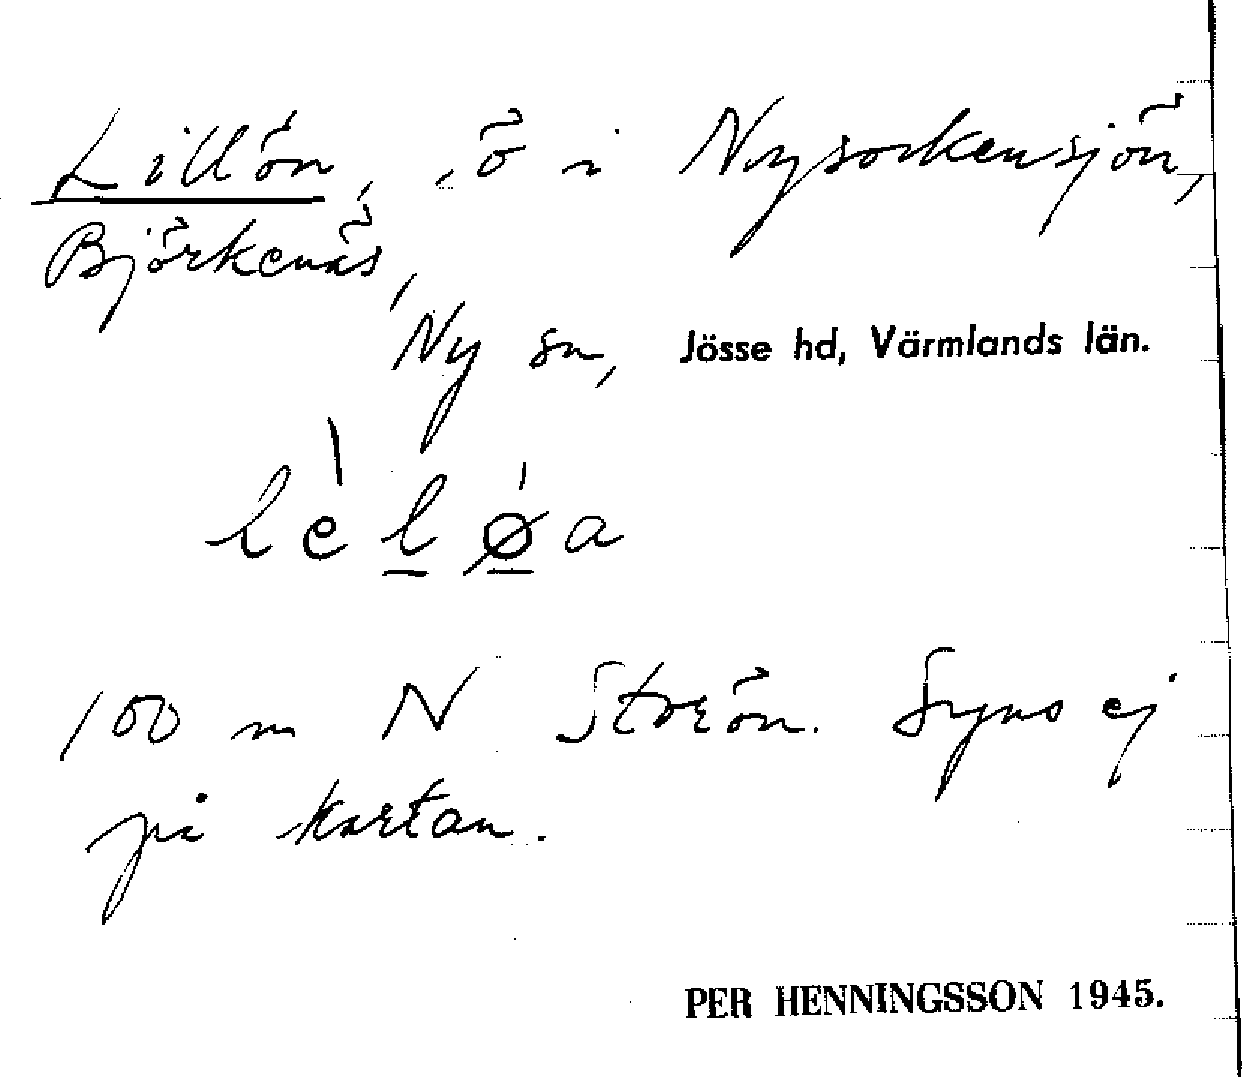 Lillön, ö i Nysockensjön,
Björkenäs,
Ny sn, Jösse hd, Värmlands län.
lèl̲ǿ̲a
100 m N Storön. Syns ej
på kartan.
PER HENNINGSSON 1945.